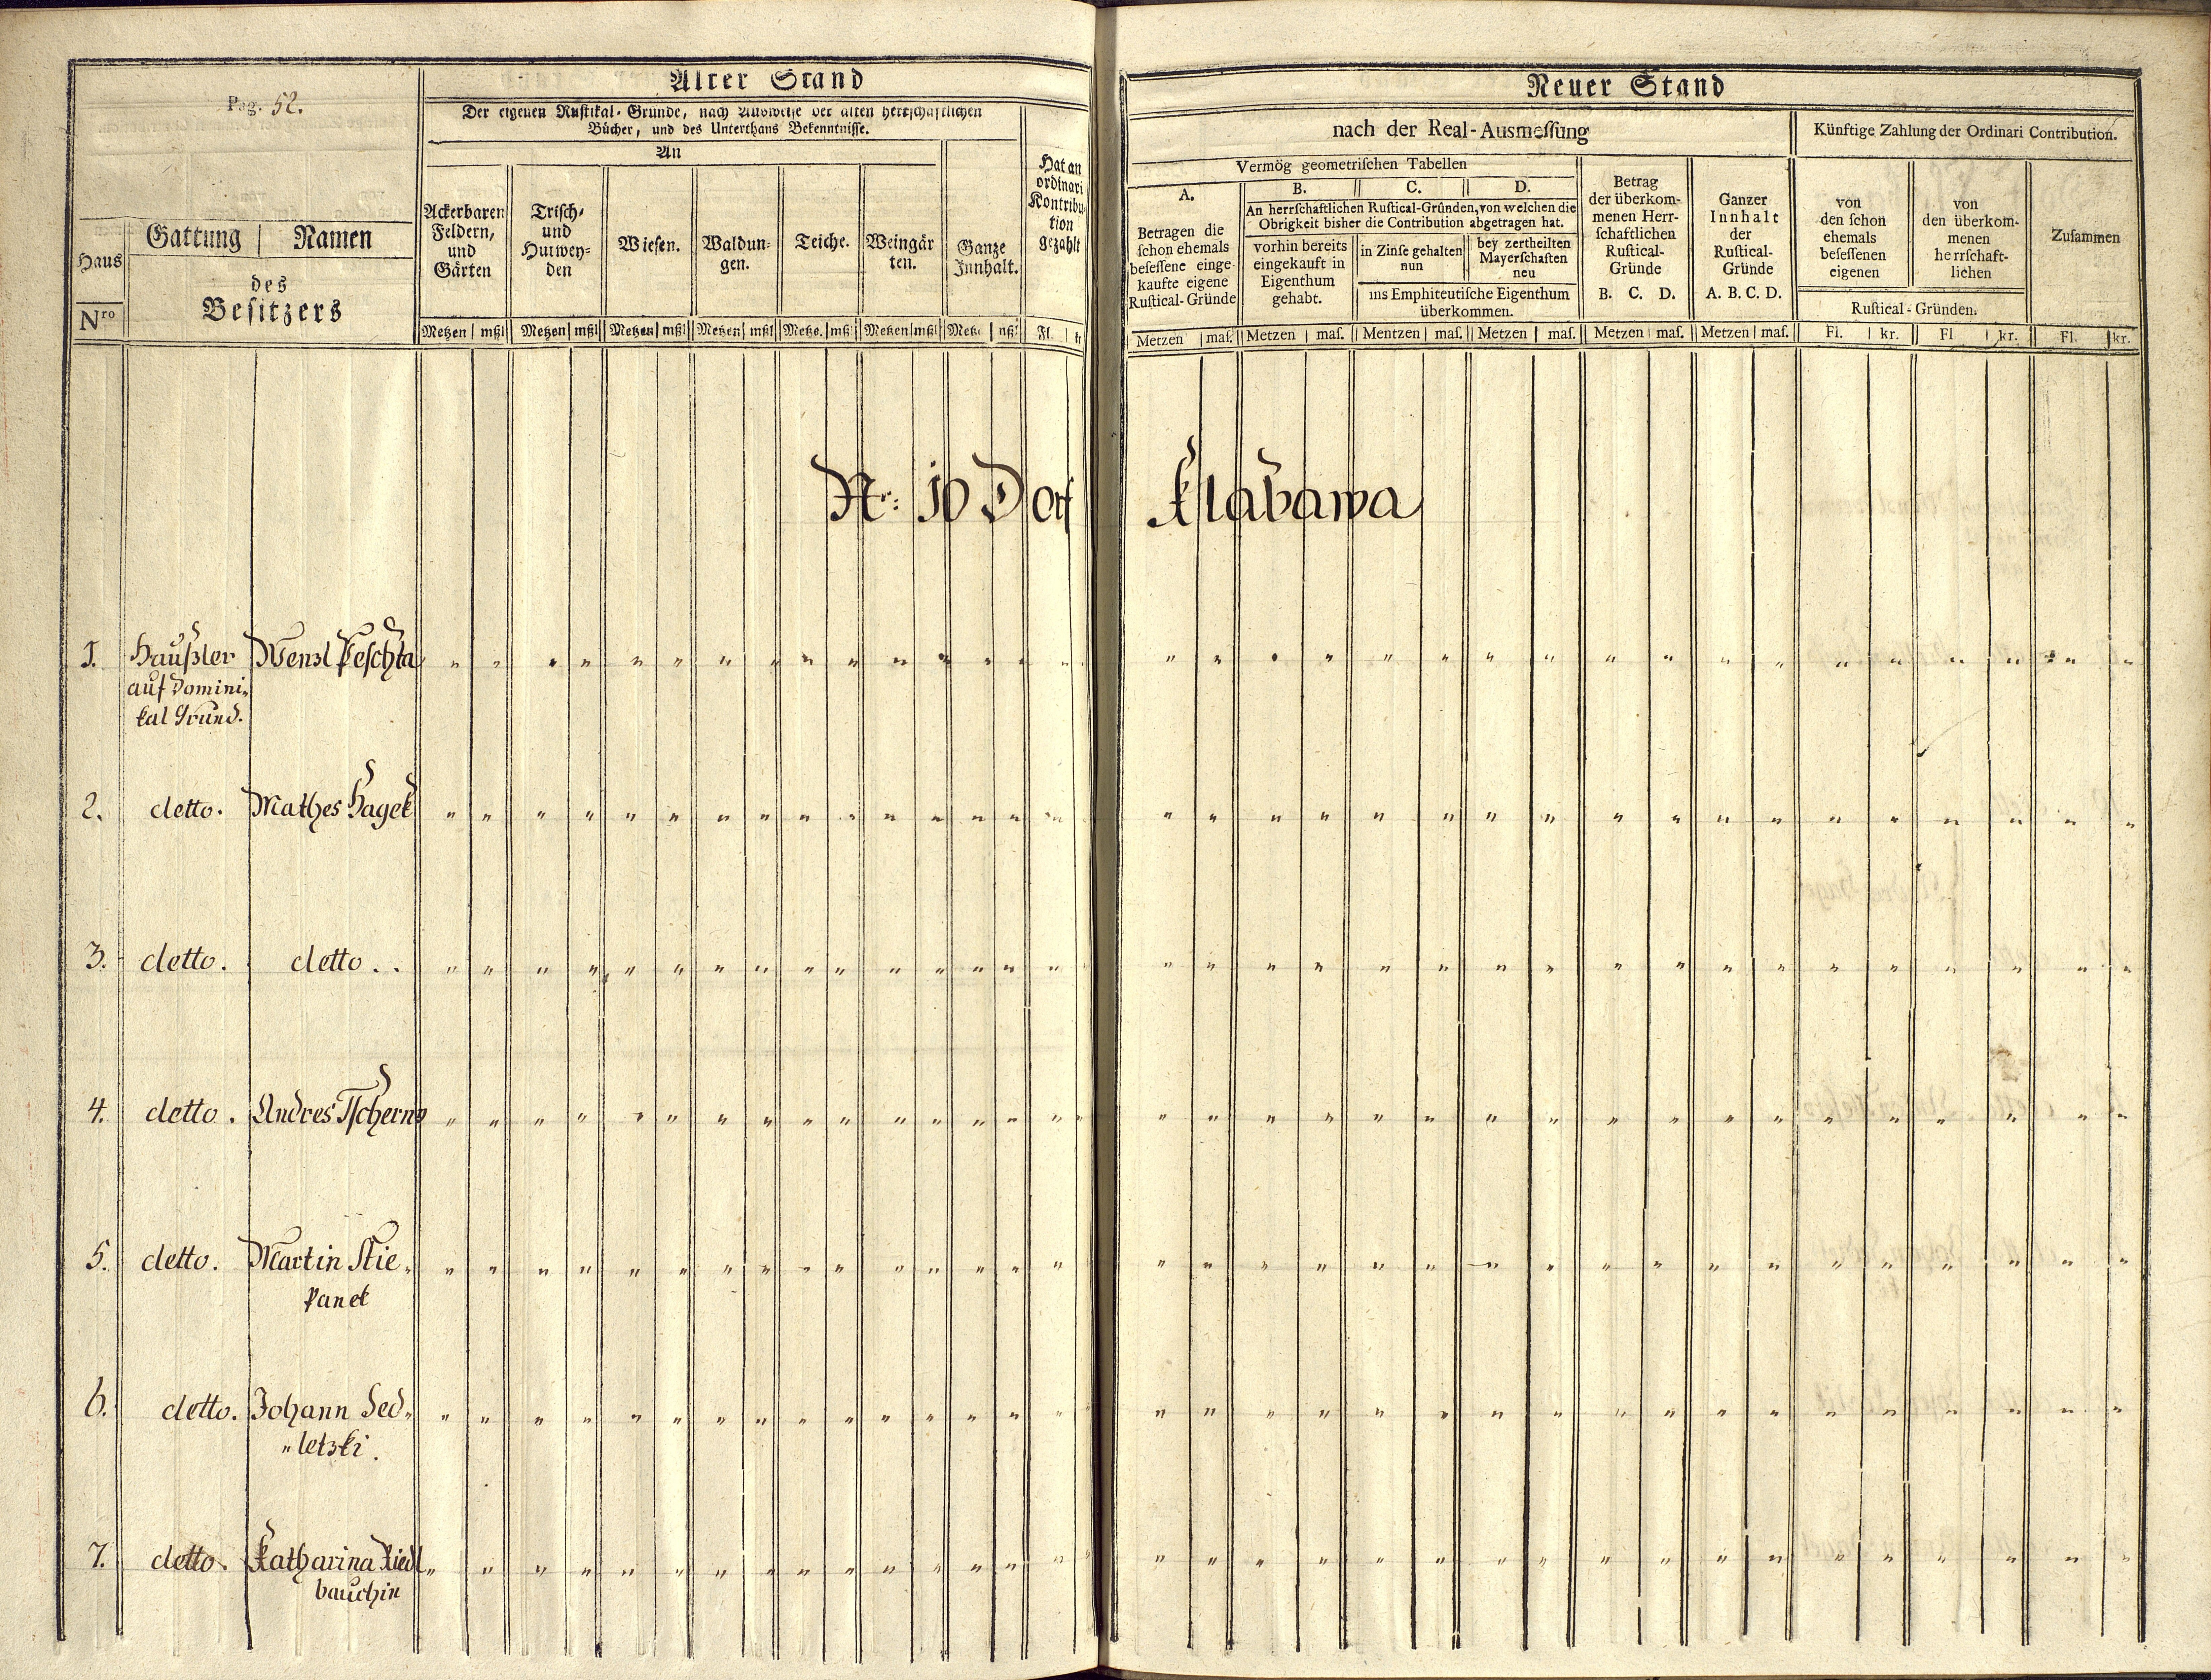 Pag. 52.
Haus
Nro
Gattung | Namen
des
Besitzers
Alter Stand
Der eigenen Rustikal-Gründe, nach Ausweise der alten herrschaftlichen
Bücher, und des Unterthans Bekenntnisse.
An
Ackerbaren
Feldern,
und
Gärten
Trisch-
und
Hutwey-
den
Wiesen.
Waldun-
gen.
Teiche.
Weingär
ten.
Ganze
Innhalt.
Hat an
ordinari
Kontribu-
tion
gezahlt
Metzen | mßl Metzen | mßl Metzen | mßl Metzen | mßl Metze. | mß Metzen | mßl Metz. | mßl Fl. | kr
Neuer Stand
nach der Real-Ausmeſſung
Künftige Zahlung der Ordinari Contribution.
Vermög geometriſchen Tabellen
A.
Betragen die
ſchon ehemals
beſeſſene einge-
kaufte eigene
Ruſtical-Gründe
B. C. D.
An herrſchaftlichen Ruſtical-Gründen, von welchen die
Obrigkeit bisher die Contribution abgetragen hat.
vorhin bereits
eingekauft in
Eigenthum
gehabt.
in Zinſe gehalten
nun
bey zertheilten
Mayerſchaften
neu
ins Emphiteutiſche Eigenthum
überkommen.
Betrag
der überkom-
menen Herr-
ſchaftlichen
Ruſtical-
Gründe
B. C. D.
Ganzer
Innhalt
der
Ruſtical-
Gründe
A. B. C. D.
von
den ſchon
ehemals
beſeſſenen
eigenen
von
den überkom-
menen
herrſchaft-
lichen
Ruſtical-Gründen.
Zuſammen
Metzen | maſ. Metzen | maſ. Mentzen | maſ. Metzen | maſ. Metzen | maſ. Metzen | maſ. Fi. | kr. Fl | kr. Fl. | kr.
Nr: 10 Dorf Klabawa
1. Haußler Wenzl Peschta
auf Domini-
kal Grund.
2. detto. Mathes Hagek
3. detto. detto..
4. detto. Andres Tscherno
5. detto. Martin Stie-
panek
6. detto. Johann Sed-
"letzki.
7. detto. Katharina Riedl
bauchin